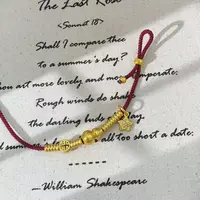 The Last Rose
<Sonnet 18>
Shall I compare thee
to a summer's day?
art more lovely and more
Rough winds do shake
the darling buds
all too short a date.
—William Shakespeare